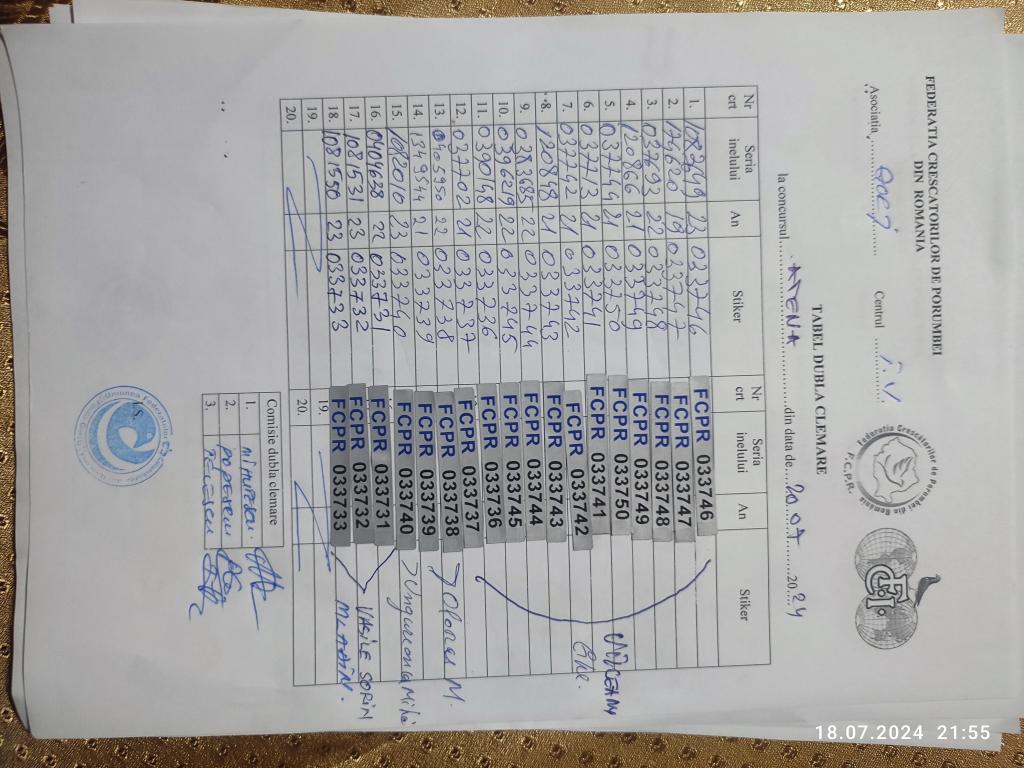 FEDERATIA CRESCATORILOR DE PORUMBEI
DIN ROMANIA
Asociatia
Centrul
Federatia Crescatorilor de Porumbei din România
F.C.P.R.
FCI
TABEL DUBLA CLEMARE
la concursul ATENA din data de 20.07 2024
Nr crt Seria inelului An Stiker Nr crt Seria inelului An Stiker
1. 23 033746 FCPR 033746
2. 19 033747 FCPR 033747
3. 22 033748 FCPR 033748
4. 120866 21 033749 FCPR 033749
5. 037744 21 033750 FCPR 033750
6. 037713 21 033741 FCPR 033741
7. 037742 21 033742 FCPR 033742
8. 120848 21 033743 FCPR 033743
9. 0283685 22 033744 FCPR 033744
10. 039619 22 033745 FCPR 033745
11. 039048 22 033736 FCPR 033736
12. 037702 21 033737 FCPR 033737
13. 0405950 22 033738 FCPR 033738
14. 1349544 21 033739 FCPR 033739
15. 1012010 23 033740 FCPR 033740
16. 0404638 22 033731 FCPR 033731
17. 1081531 23 033732 FCPR 033732
18. 1081550 23 033733 FCPR 033733
19. 19.
20. 20.
VASILE SORIN
Comisie dubla clemare
1.
2. popescu
3.
18.07.2024 21:55